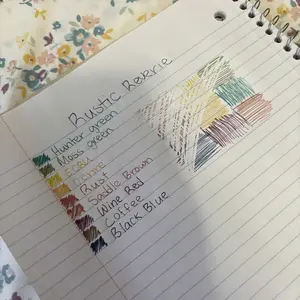 Rustic Reverie
Hunter green
Moss green
Ecru
Rust
Saddle Brown
Wine Red
Coffee
Black Blue